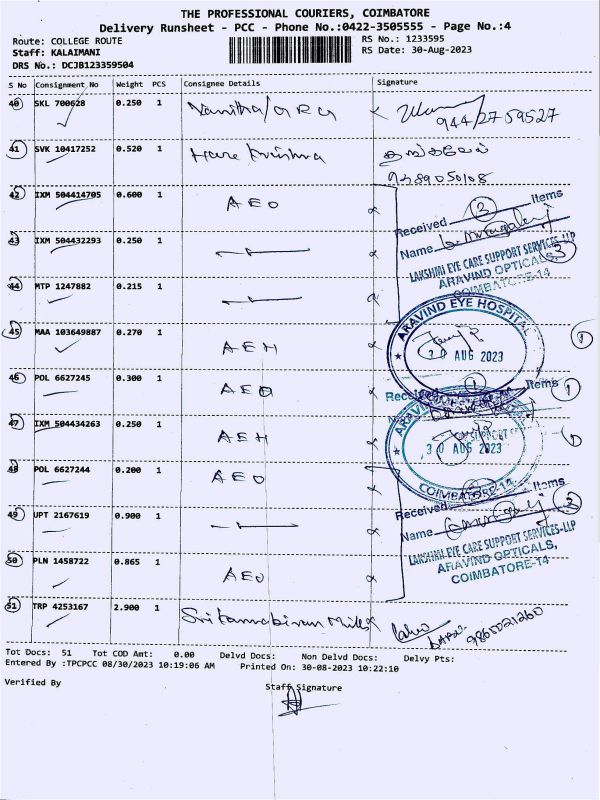 THE PROFESSIONAL COURIERS, COIMBATORE
Delivery Runsheet - PCC - Phone No.:0422-3505555 - Page No.:4
Route: COLLEGE ROUTE
RS No.: 1233595
Staff: KALAIMANI
RS Date: 30-Aug-2023
DRS No.: DCJB123359504
S No Consignment No Weight PCS Consignee Details Signature
40 SKL 700628 0.250 1
944275 9527
41 SVK 10417252 0.520 1 Hare Krishna
9389050108
42 IXM 504414705 0.600 1 AEO
Received 3 Items
Name
43 IXM 504432293 0.250 1
LAKSHMI EYE CARE SUPPORT SERVICES-LLP
ARAVIND OPTICALS,
COIMBATORE-14
3
44 MTP 1247882 0.215 1
45 MAA 103649887 0.270 1 AEH
ARAVIND EYE HOSPITAL
30 AUG 2023
1
46 POL 6627245 0.300 1 AEO
Received 1 Items 1
47 IXM 504434263 0.250 1 AEH
30 AUG 2023
1
COIMBATORE-14
48 POL 6627244 0.200 1 AEO
Received Items
49 UPT 2167619 0.900 1
Name
3
LAKSHMI EYE CARE SUPPORT SERVICES-LLP
ARAVIND OPTICALS,
COIMBATORE-14
50 PLN 1458722 0.865 1 AEO
51 TRP 4253167 2.900 1 Sri Kannabiran Mills
9865021260
Tot Docs: 51 Tot COD Amt: 0.00 Delvd Docs: Non Delvd Docs: Delvy Pts:
Entered By :TPCPCC 08/30/2023 10:19:06 AM Printed On: 30-08-2023 10:22:10
Verified By
Staff Signature